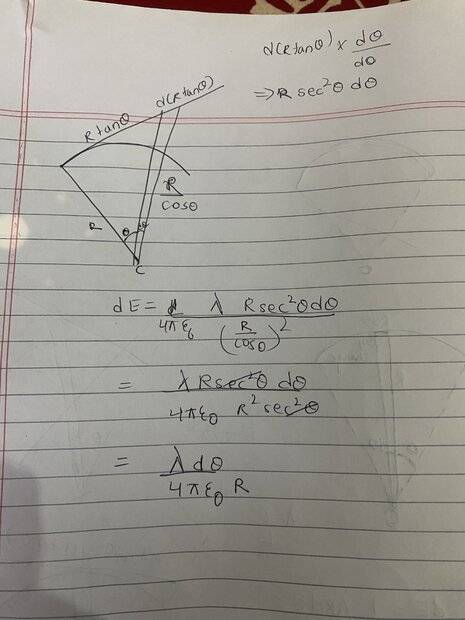 d(Rtanθ) × dθ/dθ
⇒ R sec²θ dθ
d(Rtanθ)
Rtanθ
R/cosθ
R
θ
dθ
C
dE = 1/4πε₀ λ Rsec²θdθ/(R/cosθ)²
= λ Rsec²θ dθ/4πε₀ R² sec²θ
= λdθ/4πε₀ R